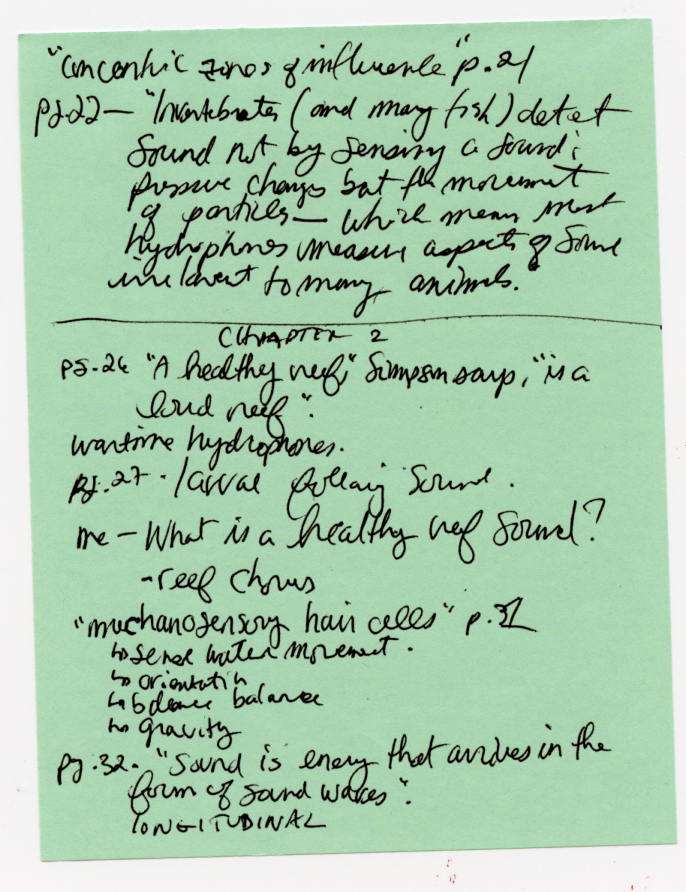 "Concentric zones of influence" p. 21
pg. 22 — "Invertebrates (and many fish) detect
sound not by sensing a sound's
pressure changes but the movement
of particles — which means most
hydrophones measure aspects of sound
irrelevant to many animals."
CHAPTER 2
pg. 26 "A healthy reef," Simpson says, "is a
loud reef".
wartime hydrophones.
pg. 27 - larvae following sound.
me - What is a healthy reef sound?
- reef chorus
"mechanosensory hair cells" p. 31
↳ sense water movement.
↳ orientation
↳ balance
↳ gravity
pg. 32. "Sound is energy that arrives in the
form of sound waves".
LONGITUDINAL